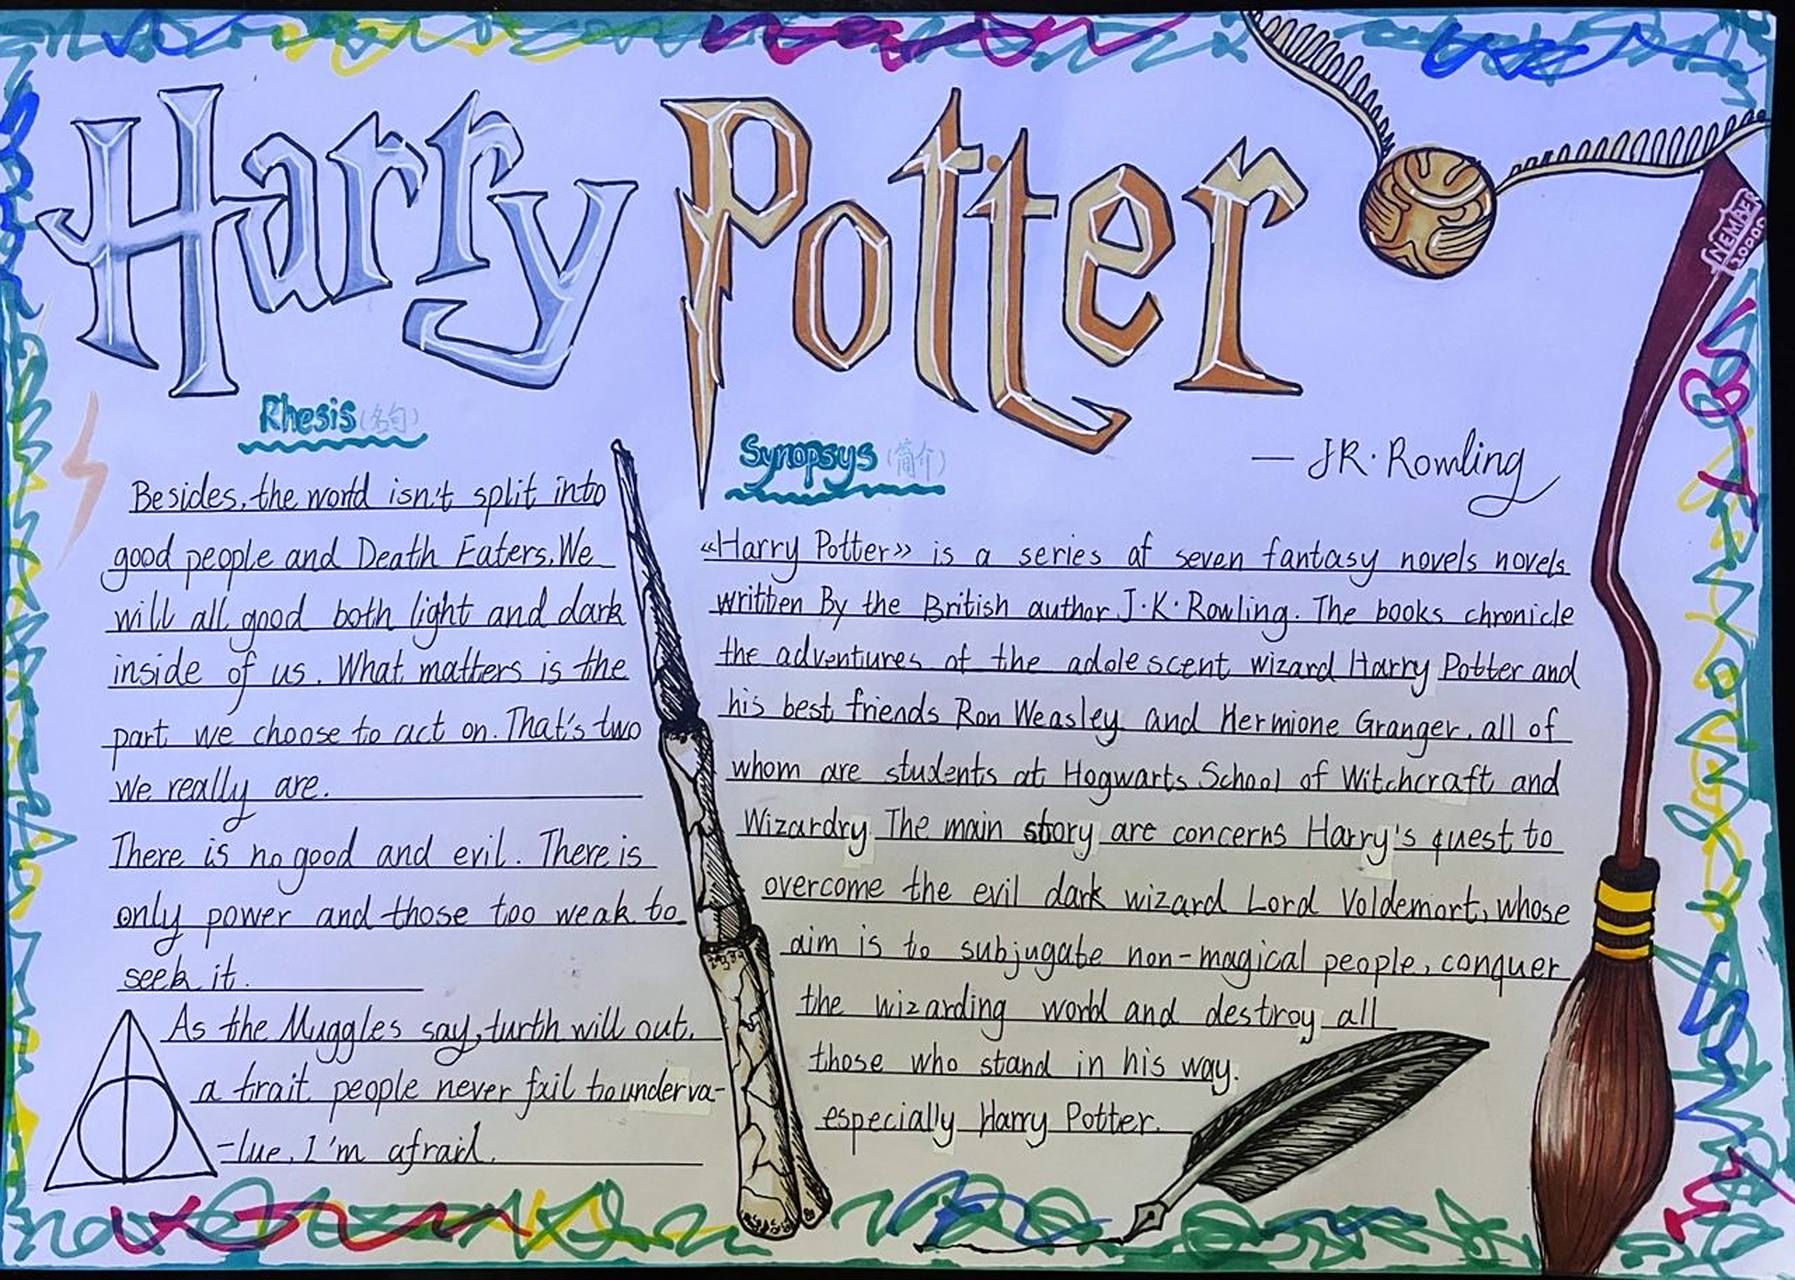 Harry Potter
NEMBER
20000
— J.R. Rowling
Rhesis (名句)
Besides, the world isn't split into
good people and Death Eaters. We
will all good both light and dark
inside of us. What matters is the
part we choose to act on. That's two
we really are.
There is no good and evil. There is
only power and those too weak to
seek it.
As the Muggles say, turth will out.
a trait people never fail to underva-
-lue. I'm afraid.
Synopsys (简介)
«Harry Potter» is a series of seven fantasy novels novels
written By the British author J·K·Rowling. The books chronicle
the adventures of the adolescent wizard Harry Potter and
his best friends Ron Weasley and Hermione Granger, all of
whom are students at Hogwarts School of Witchcraft and
Wizardry The main story are concerns Harry's quest to
overcome the evil dark wizard Lord Voldemort, whose
aim is to subjugate non-magical people, conquer
the wizarding world and destroy all
those who stand in his way.
especially Harry Potter.